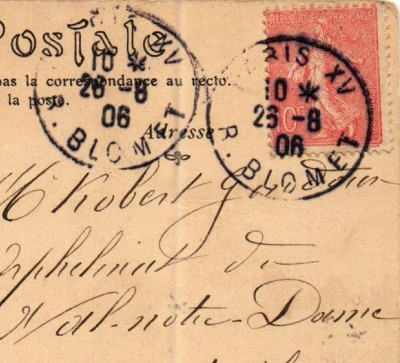 Postale
RÉPUBLIQUE FRANÇAISE
pas la correspondance au recto.
la poste.
PARIS XV
10 *
26-8
06
R. BLOMET
PARIS XV
10 *
26-8
06
R. BLOMET
Adresse
Mr Robert
Orphelinat du
Val-notre-Dame